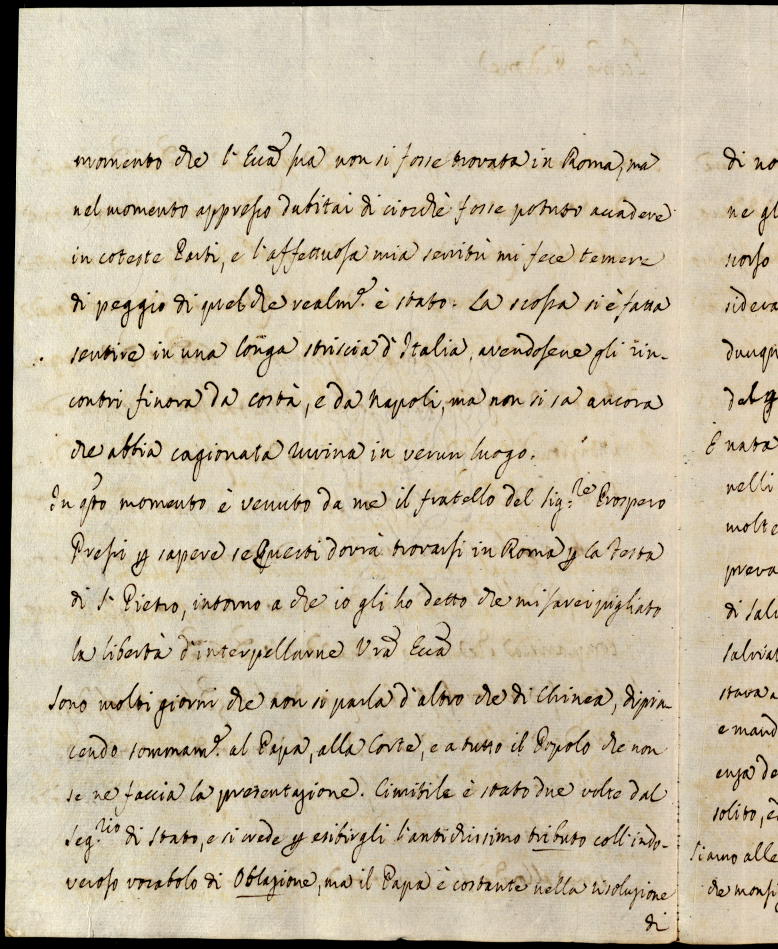 momento che l'Ecc.ª sua non si fosse trovata in Roma, ma
nel momento appresso dubitai di ciocchè fosse potuto accadere
in coteste Parti, e l'affettuosa mia servitù mi fece temere
di peggio di quel che realm.e è stato. La scossa si è fatta
sentire in una longa striscia d'Italia, avendosene gli rin-
contri finora da costà, e da Napoli, ma non si sa ancora
che abbia cagionata ruvina in verun luogo.
In qsto momento è venuto da me il fratello del Sig.re Prospero
Pressi p sapere se Questi dovrà trovarsi in Roma p la festa
di S. Pietro, intorno a che io gli ho detto che mi sarei pigliato
la libertà d'interpellarne Vra Ecc.ª
Sono molti giorni che non si parla d'altro che di Chinea, dispia-
cendo sommam.e al Papa, alla Corte, e a tutto il Popolo che non
se ne faccia la presentazione. Cimitile è stato due volte dal
Seg.rio di Stato, e si crede p esibirgli l'antichissimo tributo coll'indo-
veroso vocabolo di Oblazione, ma il Papa è costante nella risoluzione
di
di no
ne gl
scorso
sidera
dunqu
del
E nata
nelli
molte
preva
di Sal
salviat
stava a
e mand
enza de
solito, e
Siamo alle
che monsi